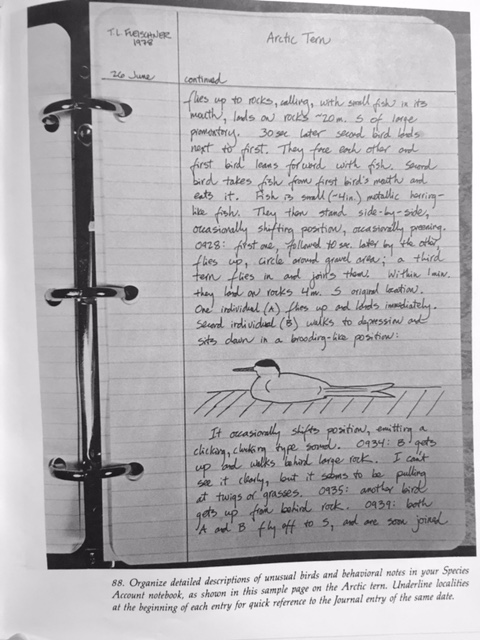 T.L. FLEISCHNER
1978
Arctic Tern
26 June
continued
flies up to rocks, calling, with small fish in its
mouth, lands on rocks ~20m. S of large
promontory. 30 sec later second bird lands
next to first. They face each other and
first bird leans forward with fish. Second
bird takes fish from first bird's mouth and
eats it. Fish is small (~4in.) metallic herring-
like fish. They then stand side-by-side,
occasionally shifting position, occasionally preening.
0928: first one, followed 10 sec. later by the other,
flies up, circle around gravel area; a third
tern flies in and joins them. Within 1 min.
they land on rocks 4m. S original location.
One individual (A) flies up and lands immediately.
Second individual (B) walks to depression and
sits down in a brooding-like position:
It occasionally shifts position, emitting a
clicking, clucking type sound. 0934: B gets
up and walks behind large rock. I can't
see it clearly, but it seems to be pulling
at twigs or grasses. 0935: another bird
gets up from behind rock. 0939: both
A and B fly off to S, and are soon joined
88. Organize detailed descriptions of unusual birds and behavioral notes in your Species
Account notebook, as shown in this sample page on the Arctic tern. Underline localities
at the beginning of each entry for quick reference to the Journal entry of the same date.